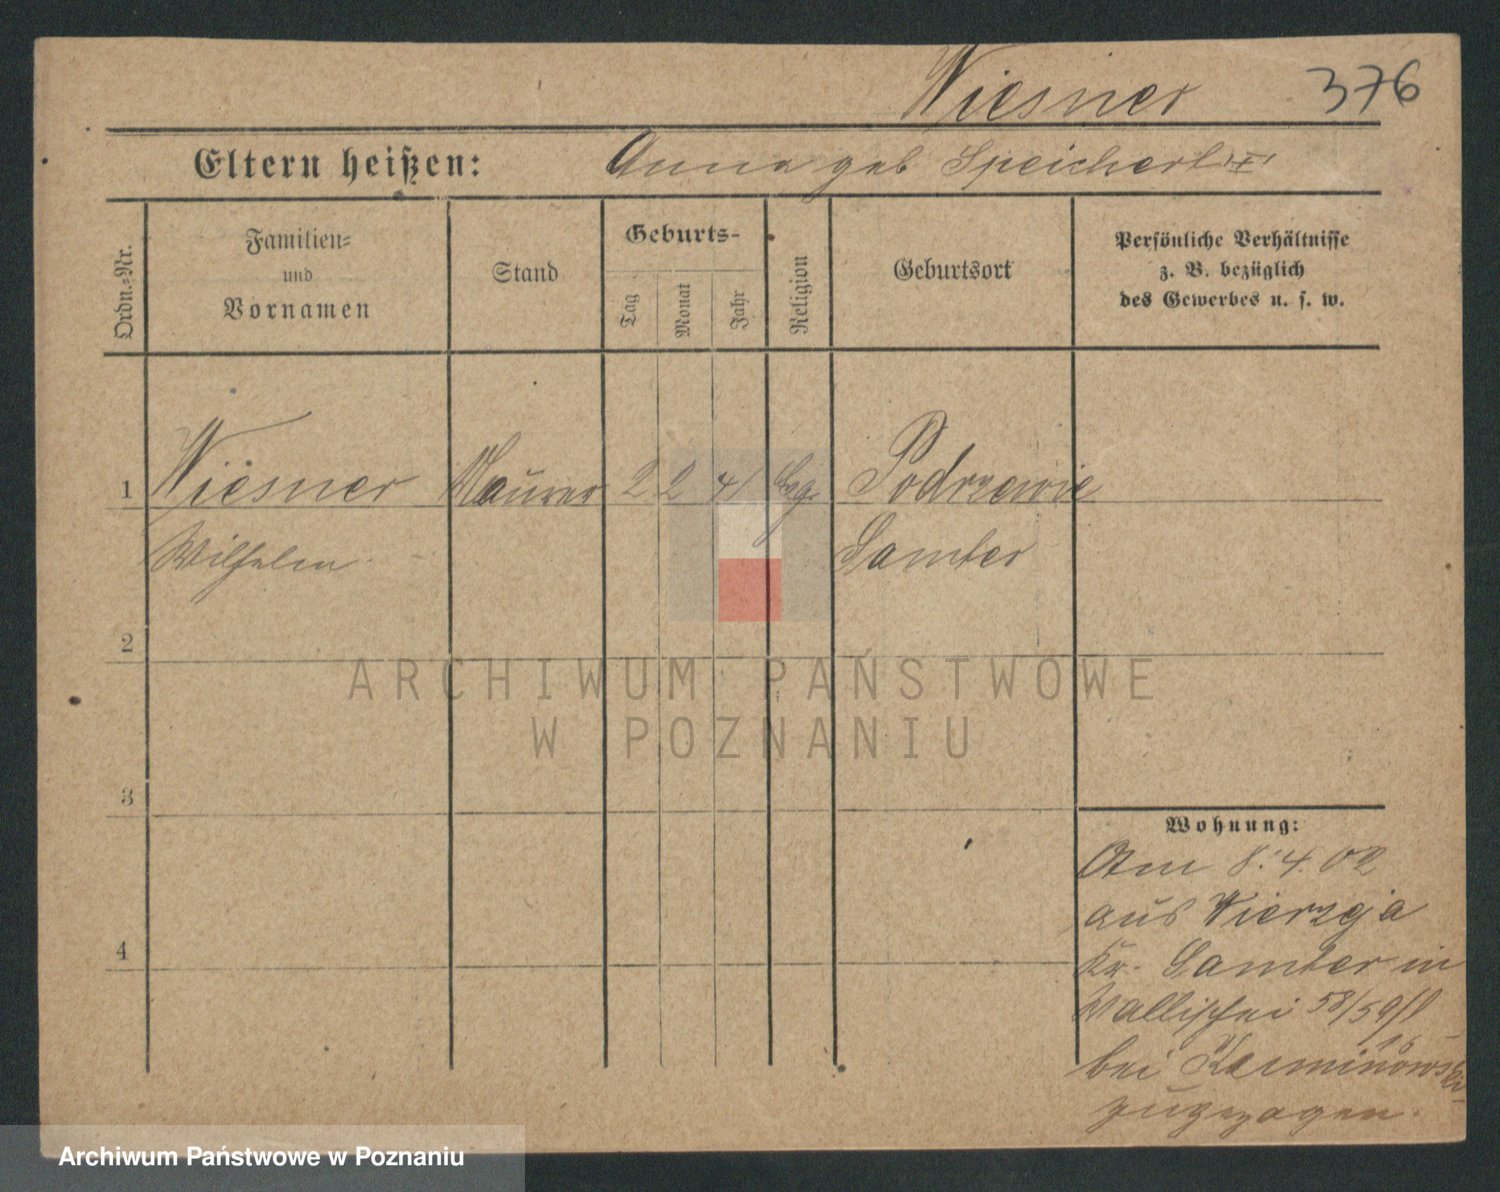 Wiesner 376
Eltern heißen: Anna geb Speichert
Ordn.-Nr.
Familien-
und
Vornamen
Stand
Geburts-
Tag
Monat
Jahr
Religion
Geburtsort
Persönliche Verhältnisse
z. B. bezüglich
des Gewerbes u. s. w.
1 Wiesner Maurer 2 2 41 Podrzewie
Wilhelm Samter
2
3
4
Wohnung:
Am 8.4.02
aus Wierzeja
Kr. Samter in
Wallischei 58/59
bei Karminowski
zugezogen.
ARCHIWUM PAŃSTWOWE
W POZNANIU
Archiwum Państwowe w Poznaniu